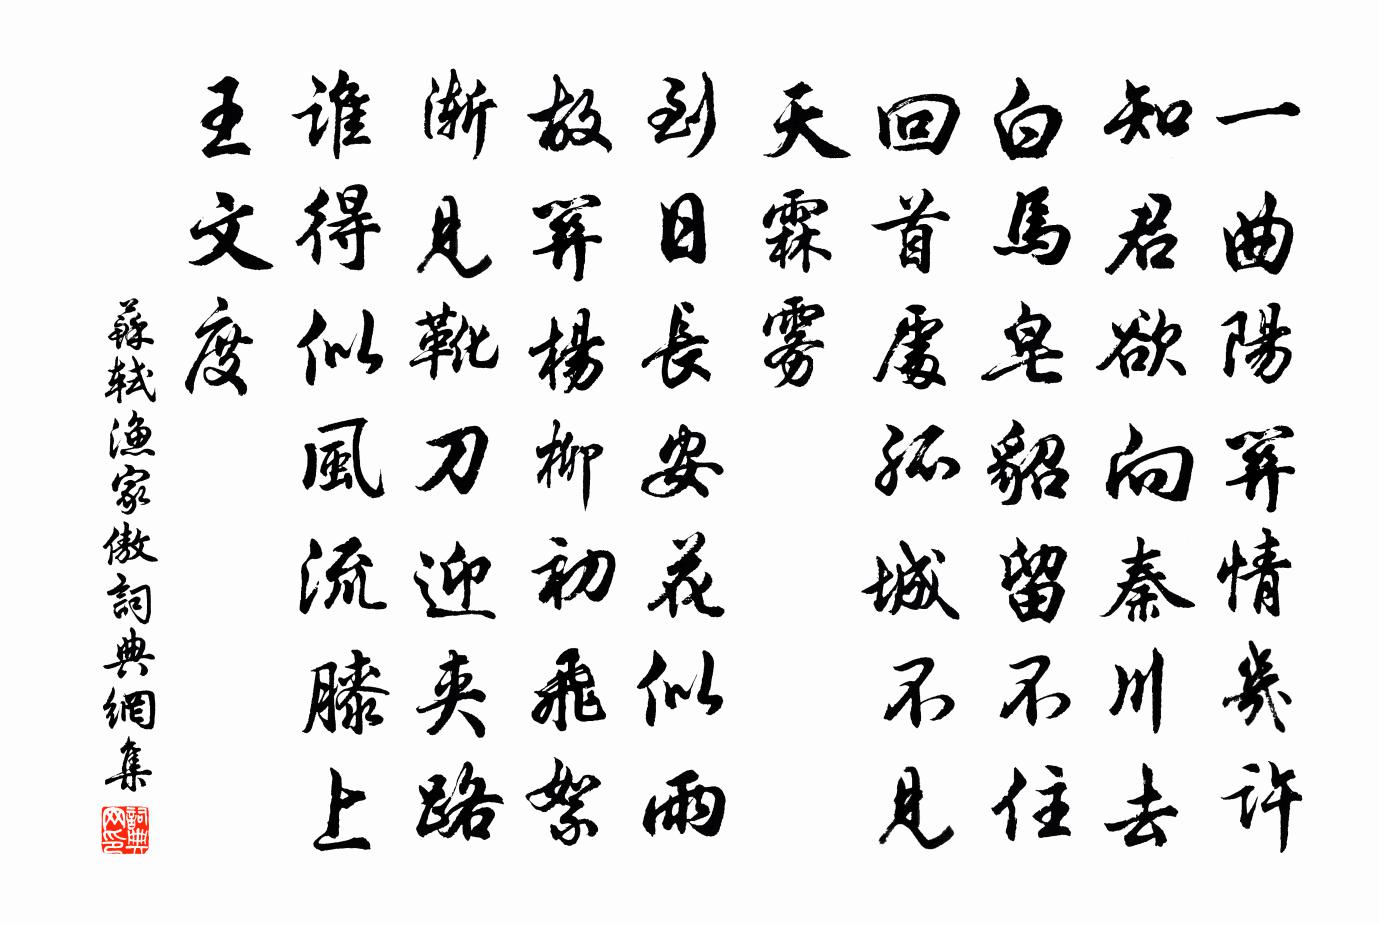 一曲陽關情幾許
知君欲向秦川去
白馬皂貂留不住
回首處孤城不見
天霖雾
到日長安花似雨
故關楊柳初飛絮
漸見靴刀迎夾路
誰得似風流膝上
王文度
蘇軾漁家傲詞典網集
詞典网印